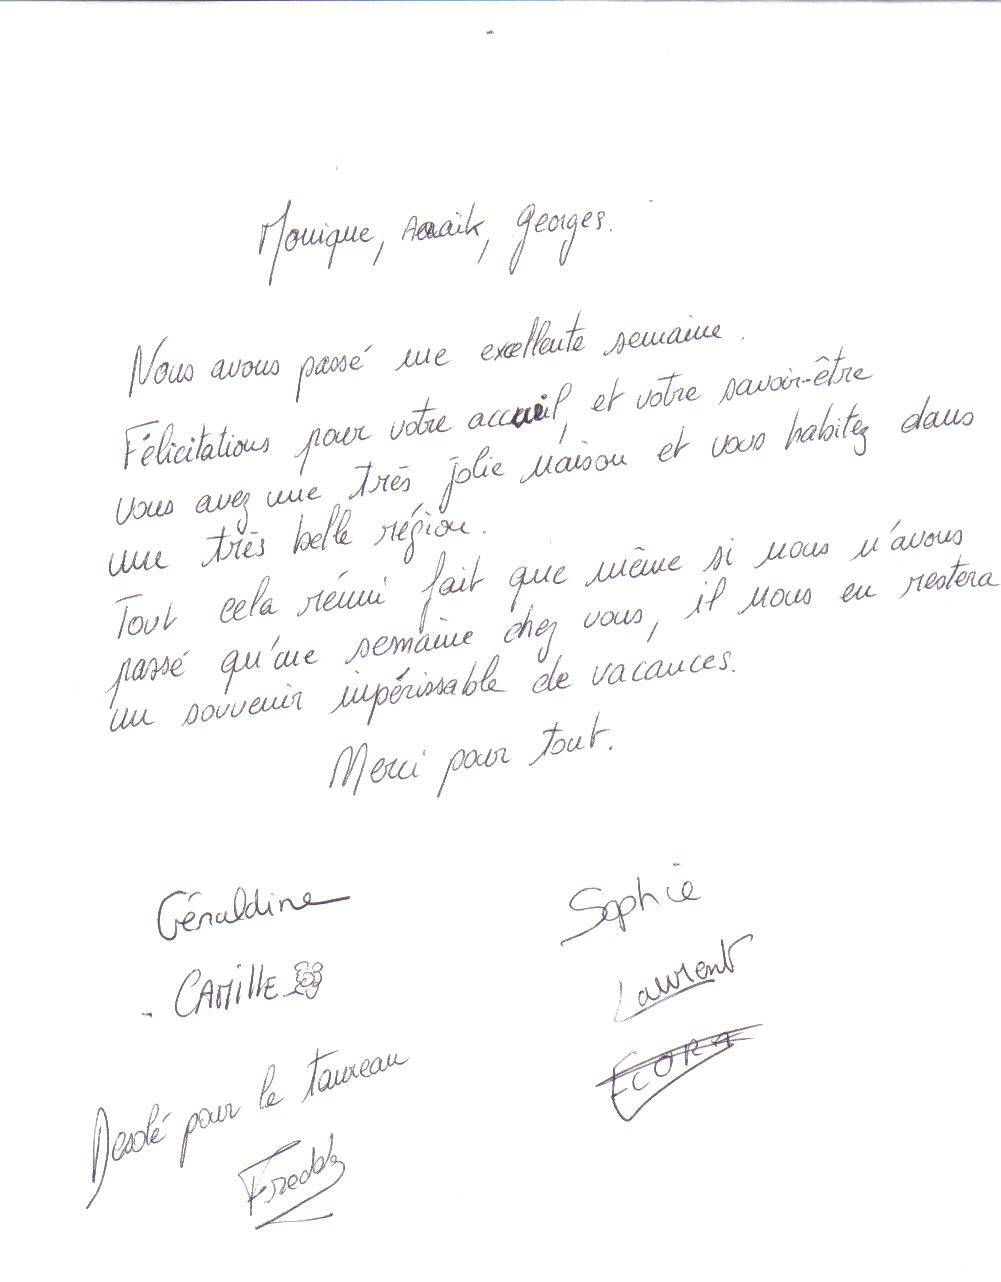 Monique, Anaïk, Georges.
Nous avons passé une excellente semaine.
Félicitations pour votre accueil, et votre savoir-être
vous avez une très jolie maison et vous habitez dans
une très belle région.
Tout cela réuni fait que même si nous n'avons
passé qu'une semaine chez vous, il nous en restera
un souvenir impérissable de vacances.
Merci pour tout.
Géraldine
Sophie
CAMILLE
Laurent
Desolé pour le taureau
Freddy